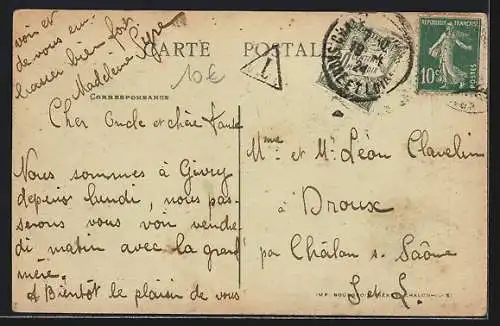 CARTE POSTALE
CORRESPONDANCE
10€
T
RÉPUBLIQUE FRANÇAISE
10c
POSTES
Cher Oncle et chère tante
Nous sommes à Givry
depuis lundi, nous pas-
serons vous voir vendre-
di matin avec la grand
mère.
A Bientôt le plaisir de vous
voir et
de vous em-
brasser bien fort
Madeleine
Mme et Mr Léon Clavelin
à Droux
par Châlon s. Saône
S. et L.